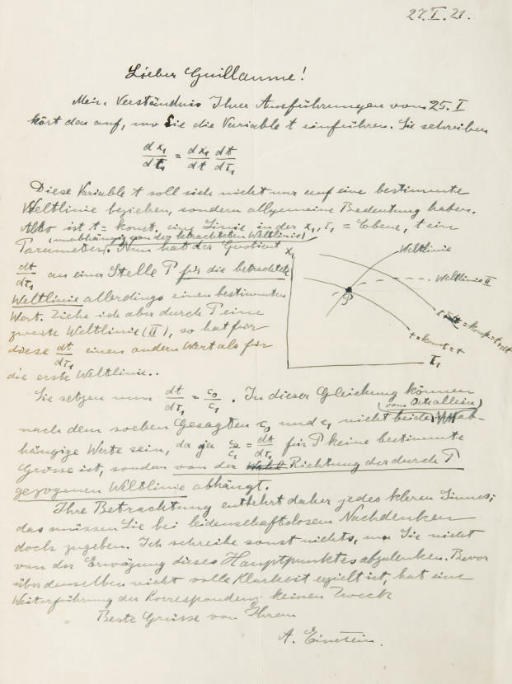 27.I.21.
Lieber Guillaume!
Mein Verständnis Ihrer Ausführungen vom 25. I
hört da auf, wo Sie die Variable t einführen. Sie schreiben
dx₁/dτ₁ = dx₁/dt dt/dτ₁
Diese Variable t soll sich nicht nur auf eine bestimmte
Weltlinie beziehen, sondern allgemeine Bedeutung haben.
Also ist t = konst. eine Linie in der x₁, τ₁ = Ebene, t ein
(unabhängig von der betrachteten Weltlinie)
Parameter. Nun hat der Quotient
dt/dτ₁ an eine Stelle P für die betrachtete
Weltlinie allerdings einen bestimmten
Wert. Ziehe ich aber durch P eine
zweite Weltlinie (II), so hat für
diese dt/dτ₁ einen andern Wert als für
die erste Weltlinie..
x₁
Weltlinie
Weltlinie II
P
t = konst
τ₁
Sie setzen nun dt/dτ₁ = c₂/c₁. In dieser Gleichung können
(vom Ort allein)
nach dem soeben Gesagten c₂ und c₁ nicht beide ab-
hängige Werte sein, da ja c₂/c₁ = dt/dτ₁ für P keine bestimmte
Grösse ist, sondern von der Richtung der durch P
gezogenen Weltlinie abhängt.
Ihre Betrachtung entbehrt daher jedes klaren Sinnes;
das müssen Sie bei leidenschaftslosem Nachdenken
doch zugeben. Ich schreibe sonst nichts, um Sie nicht
von der Erwägung dieses Hauptpunktes abzulenken. Bevor
über denselben nicht volle Klarheit erzielt ist, hat eine
Weiterführung der Korrespondenz keinen Zweck
Beste Grüsse von Ihrem
A. Einstein.